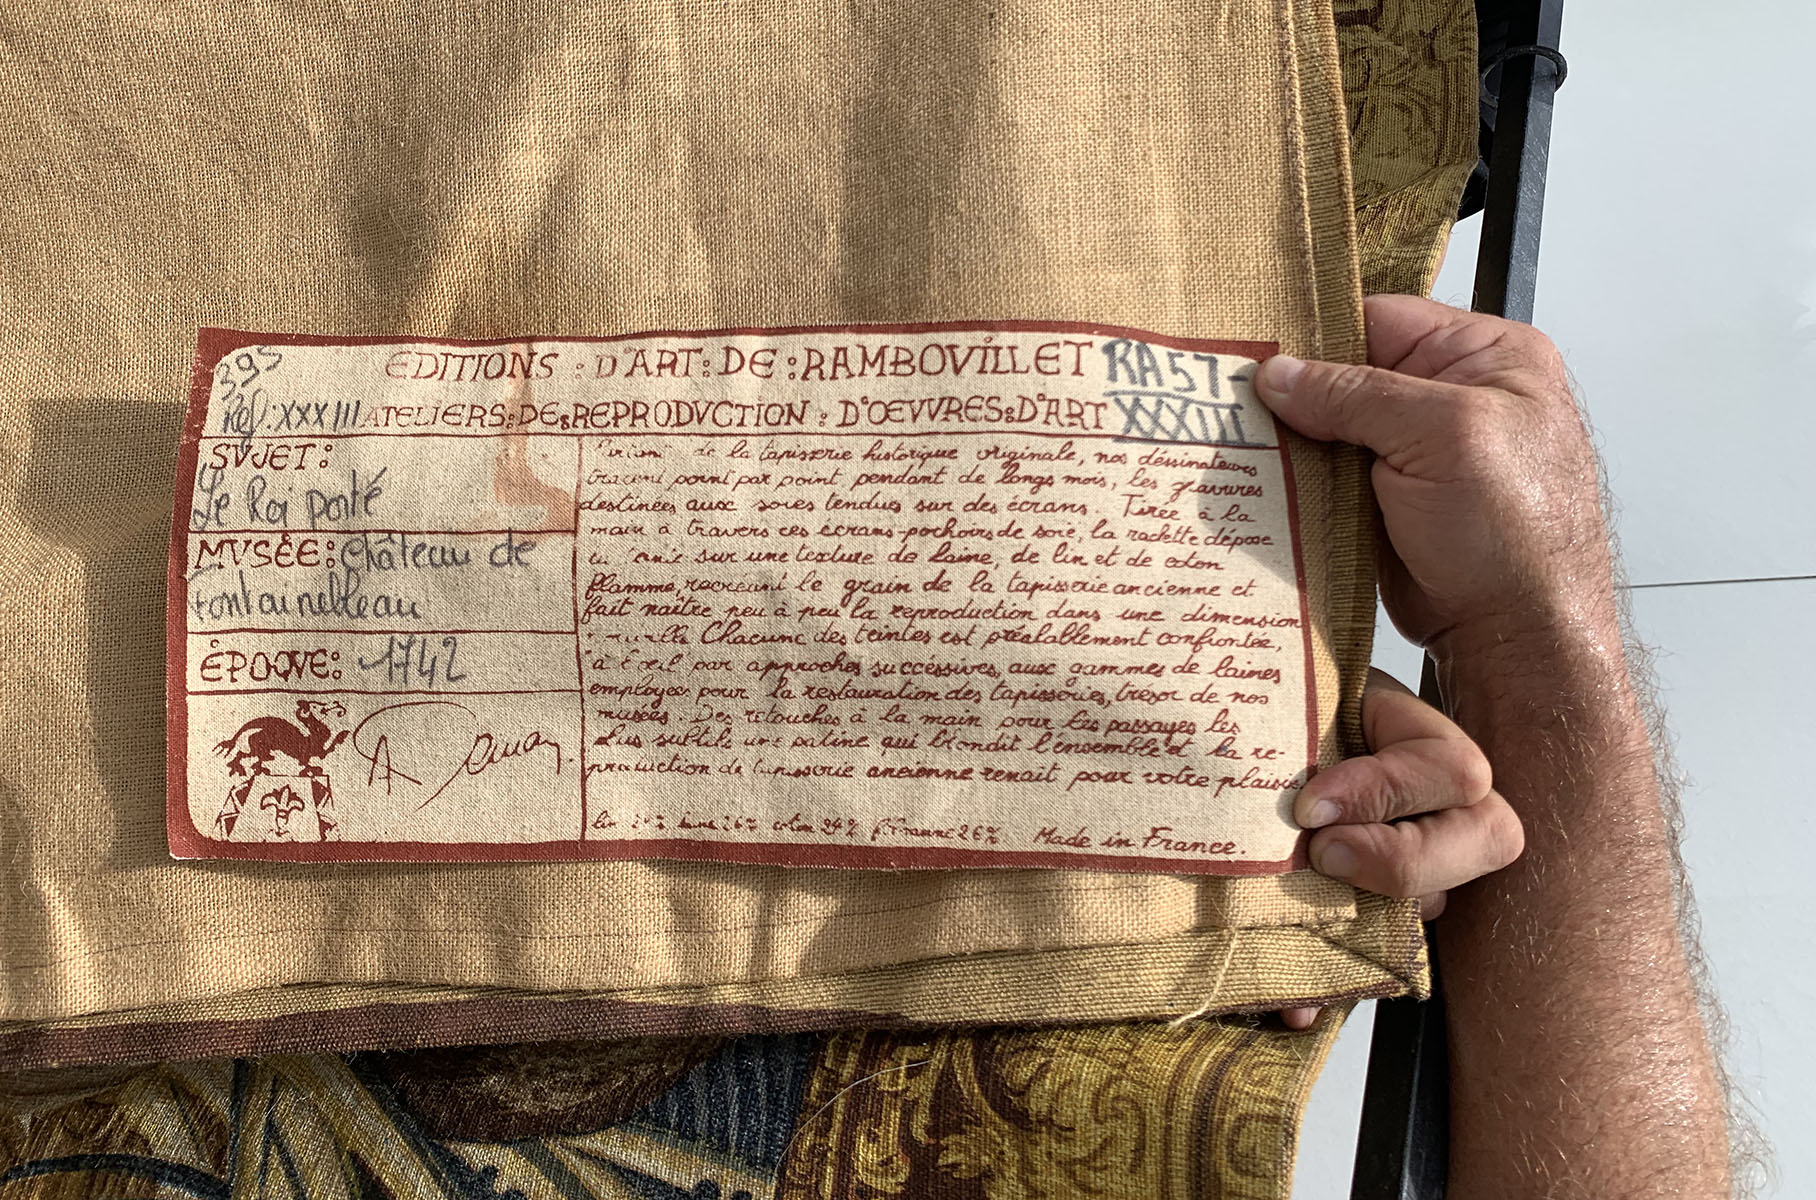 395
EDITIONS : D'ART : DE : RAMBOVILLET RA57-
Réf.: XXXIII ATELIERS : DE : REPRODVCTION : D'OEVVRES : D'ART XXXIII
SVJET:
Le Roi porté
MVSÉE: Château de
Fontainebleau
ÉPOQVE: 1742
de la tapisserie historique originale, nos déssinateurs
tracent point par point pendant de longs mois, les gravures
destinées aux soies tendues sur des écrans. Tirée à la
main à travers ces écrans-pochoirs de soie, la raclette dépose
sur une texture de laine, de lin et de coton
flammé, recréant le grain de la tapisserie ancienne et
fait naître peu à peu la reproduction dans une dimension
Chacune des teintes est préalablement confrontée,
à l'oeil par approches succéssives, aux gammes de laines
employées pour la restauration des tapisseries, trésor de nos
musées. Des retouches à la main pour les passages les
plus subtils une patine qui blondit l'ensemble et la re-
production de tapisserie ancienne renait pour votre plaisir.
lin laine 26% coton 24% fibranne 26% Made in France.